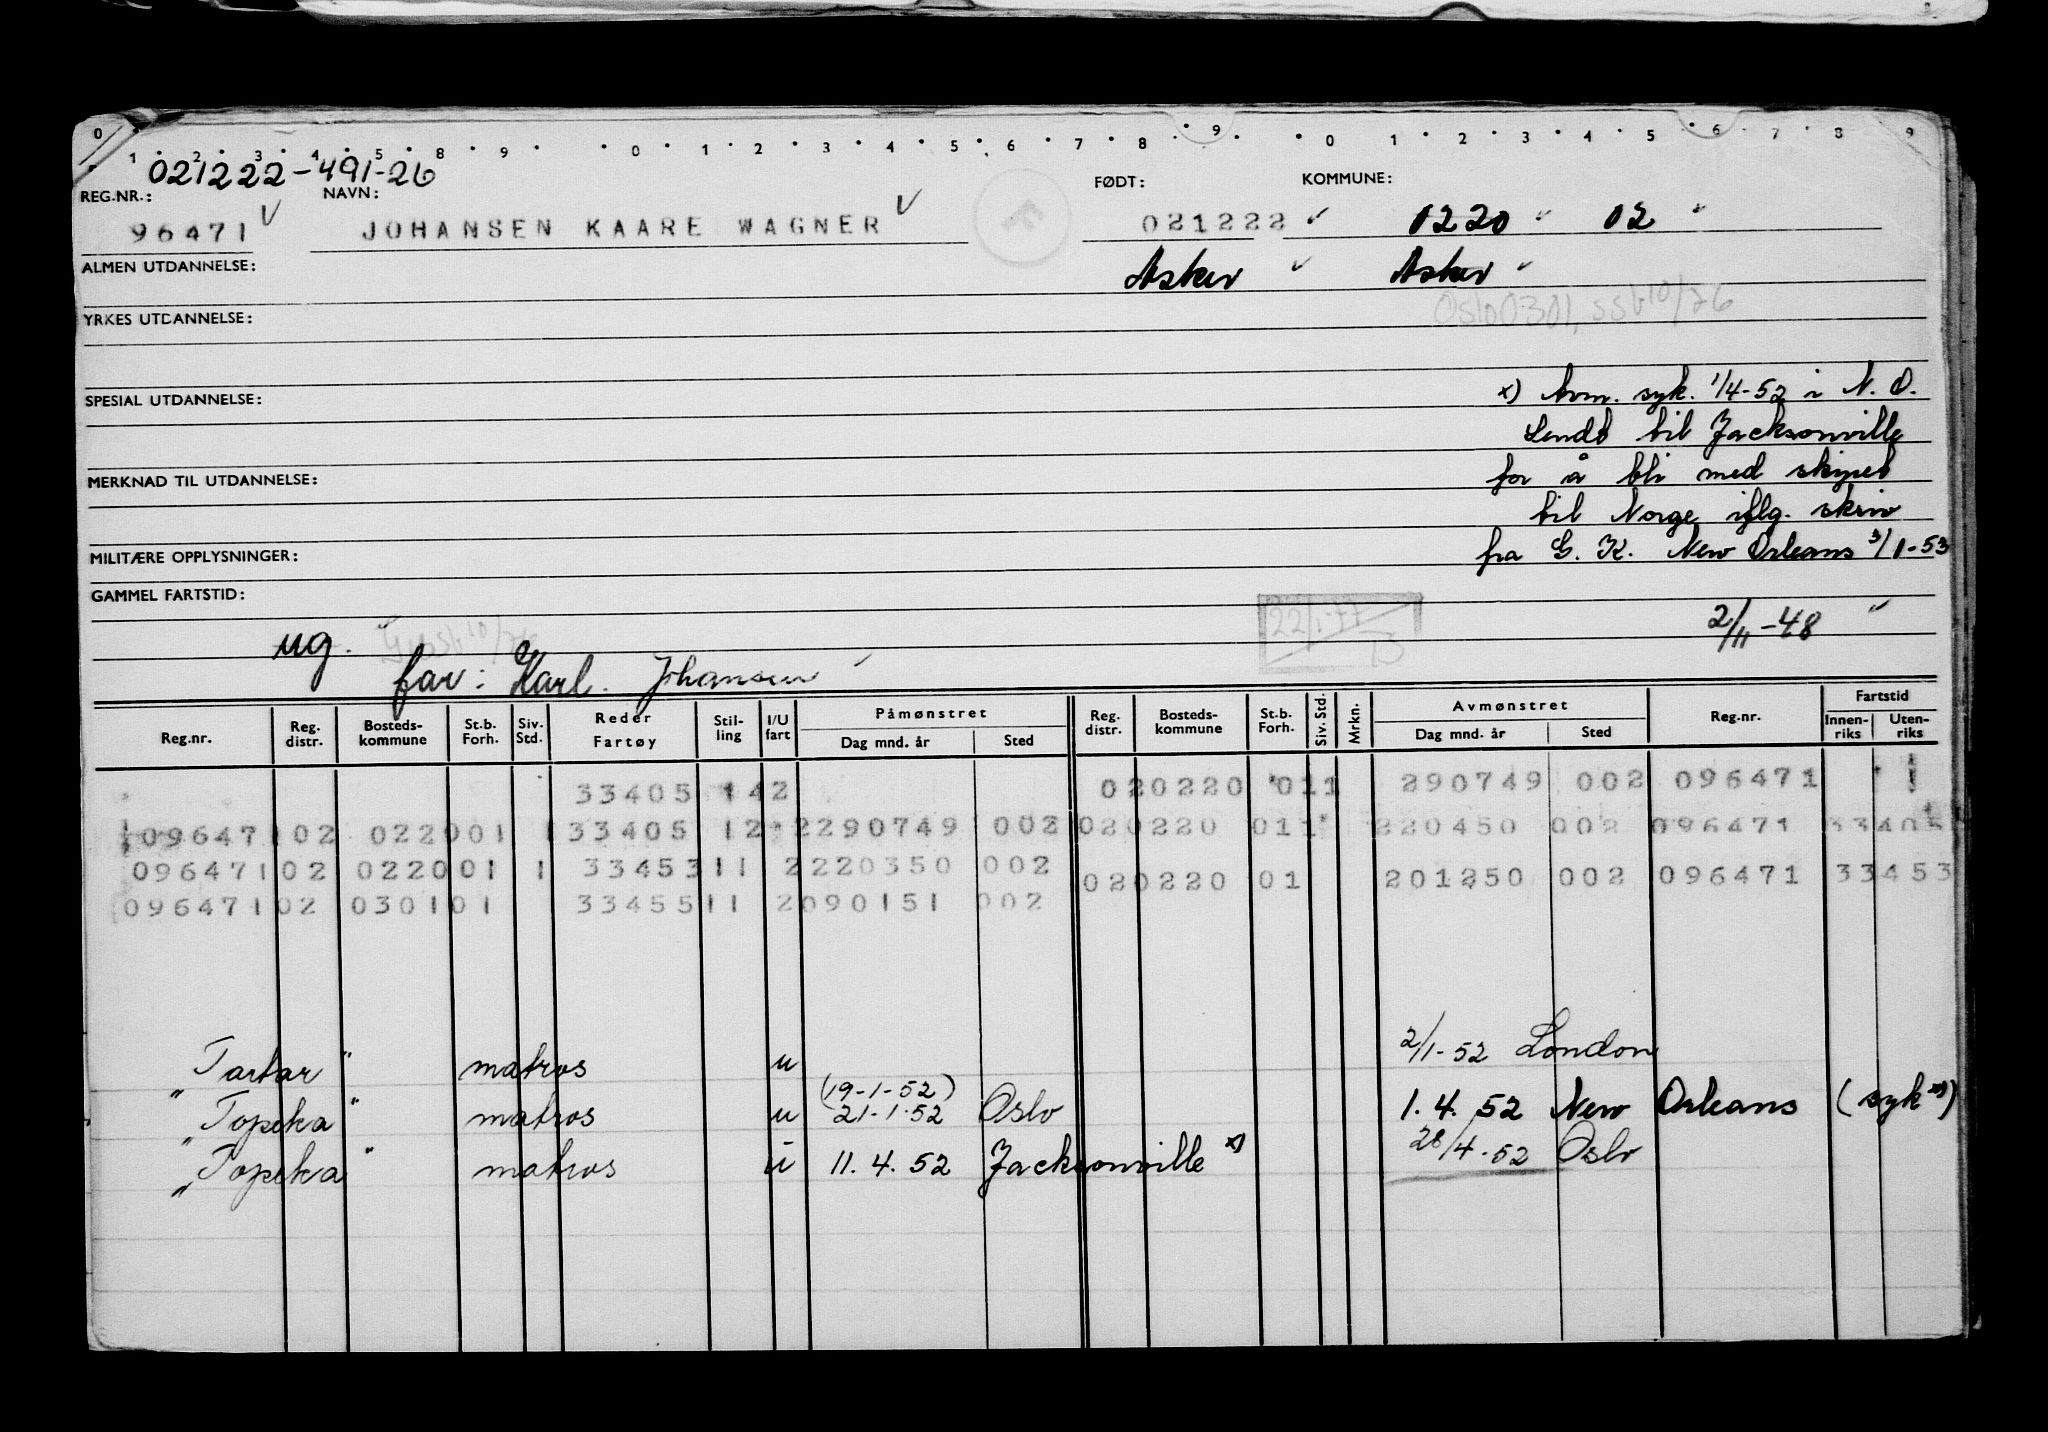 0 1 2 3 4 5 8 9 0 1 2 3 4 5 6 7 8 9 0 1 2 3 4 5 6 7 8 9
021222-491-26
REG.NR.: NAVN: FØDT: KOMMUNE:
96471 JOHANSEN KAARE WAGNER 021222 0220 02
ALMEN UTDANNELSE: Asker Asker
Oslo 0301, ssb 10/76
YRKES UTDANNELSE:
x) Avm. syk. 1/4-52 i N. O.
SPESIAL UTDANNELSE:
Sendt til Jacksonville
for å bli med skipet
MERKNAD TIL UTDANNELSE:
til Norge iflg. skriv
fra G. K. New Orleans 3/1-53
MILITÆRE OPPLYSNINGER:
GAMMEL FARTSTID:
22/1-77
2/11-48
ug.
far: Karl. Johansen
Reg.nr. Reg. distr. Bosteds-kommune St.b. Forh. Siv. Std. Reder Fartøy Stil-ling I/U fart Påmønstret Dag mnd. år Sted Reg. distr. Bosteds-kommune St.b. Forh. Siv. Std. Mrkn. Avmønstret Dag mnd. år Sted Reg.nr. Fartstid Innen-riks Uten-riks
33405 142 020220 011 290749 002 096471
096471 02 022001 1 33405 12 2290749 002 020220 011 220450 002 096471 33405
096471 02 022001 1 33453 11 2220350 002 020220 01 201250 002 096471 33453
096471 02 030101 33455 11 2090151 002
"Tartar" matros u 2/1-52 London
(19-1-52)
"Topeka" matros u 21-1-52 Oslo 1.4.52 New Orleans (syk x))
"Topeka" matros u 11.4.52 Jacksonville x) 28/4-52 Oslo